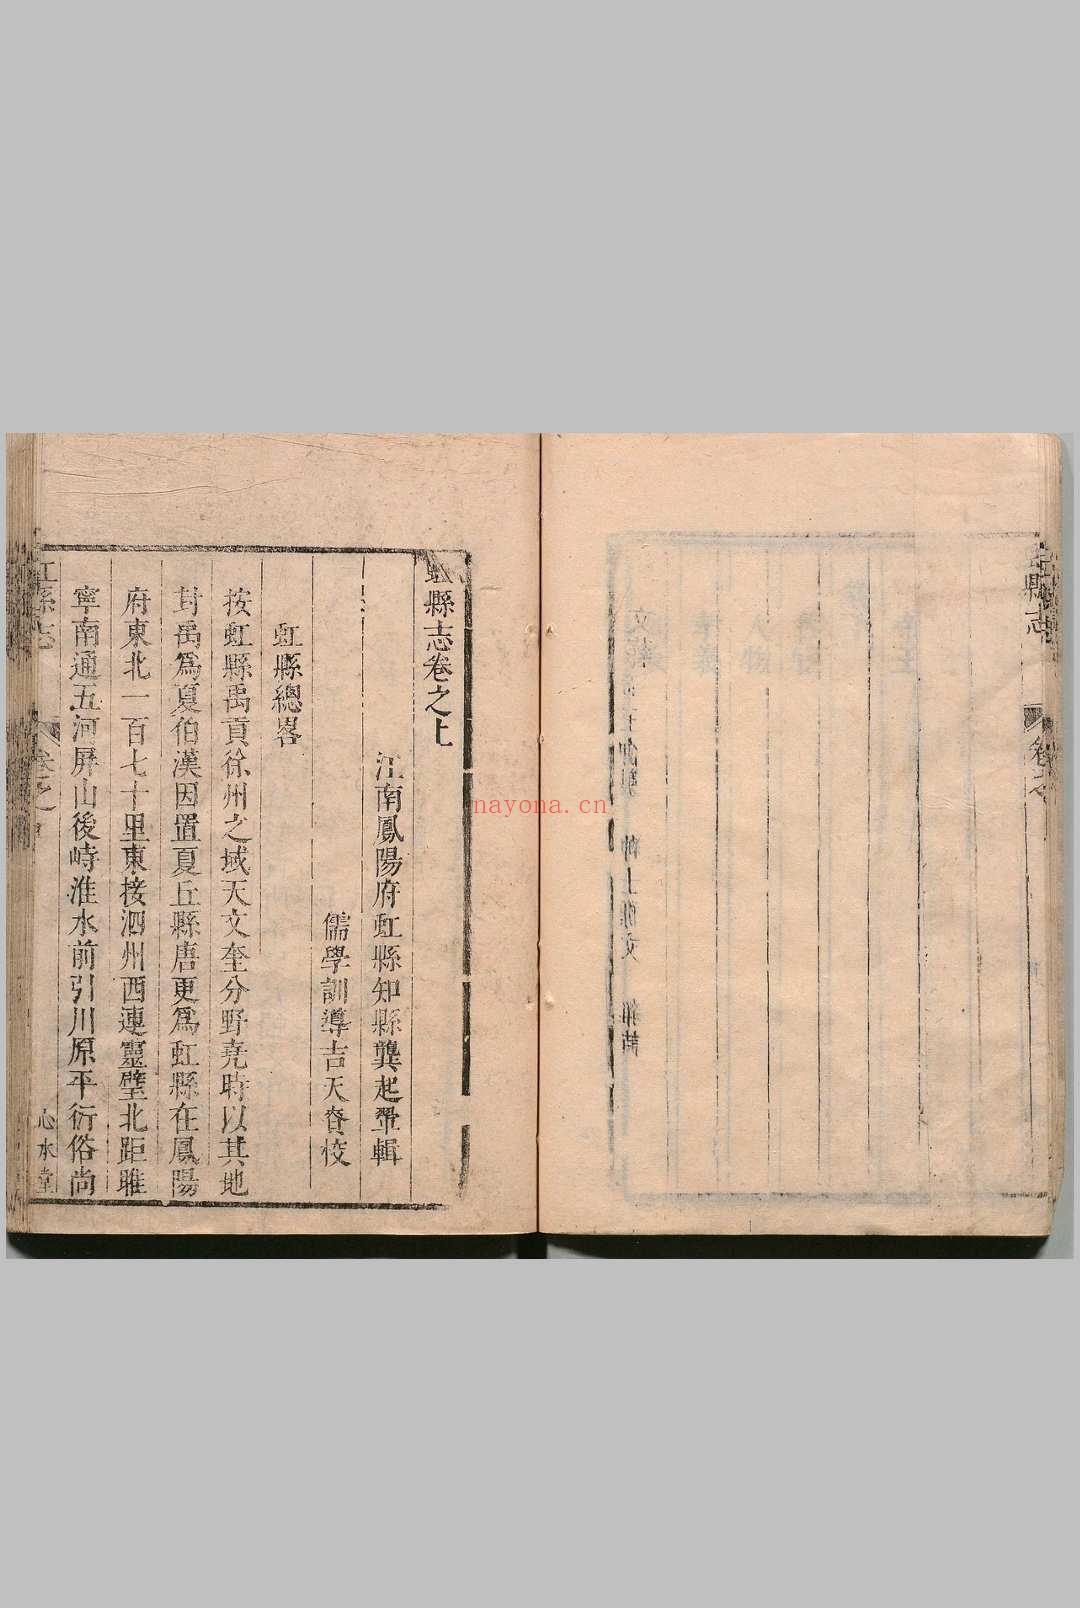 縣志
虹縣志卷之上
江南鳳陽府虹縣知縣龔起翬輯
儒學訓導吉天賚校
虹縣總畧
按虹縣禹貢徐州之域天文奎分野堯時以其地
封禹爲夏伯漢因置夏丘縣唐更爲虹縣在鳳陽
府東北一百七十里東接泗州西連靈璧北距睢
寧南通五河屏山後峙淮水前引川原平衍俗尚
虹縣志
卷之
心水堂
nayona.cn